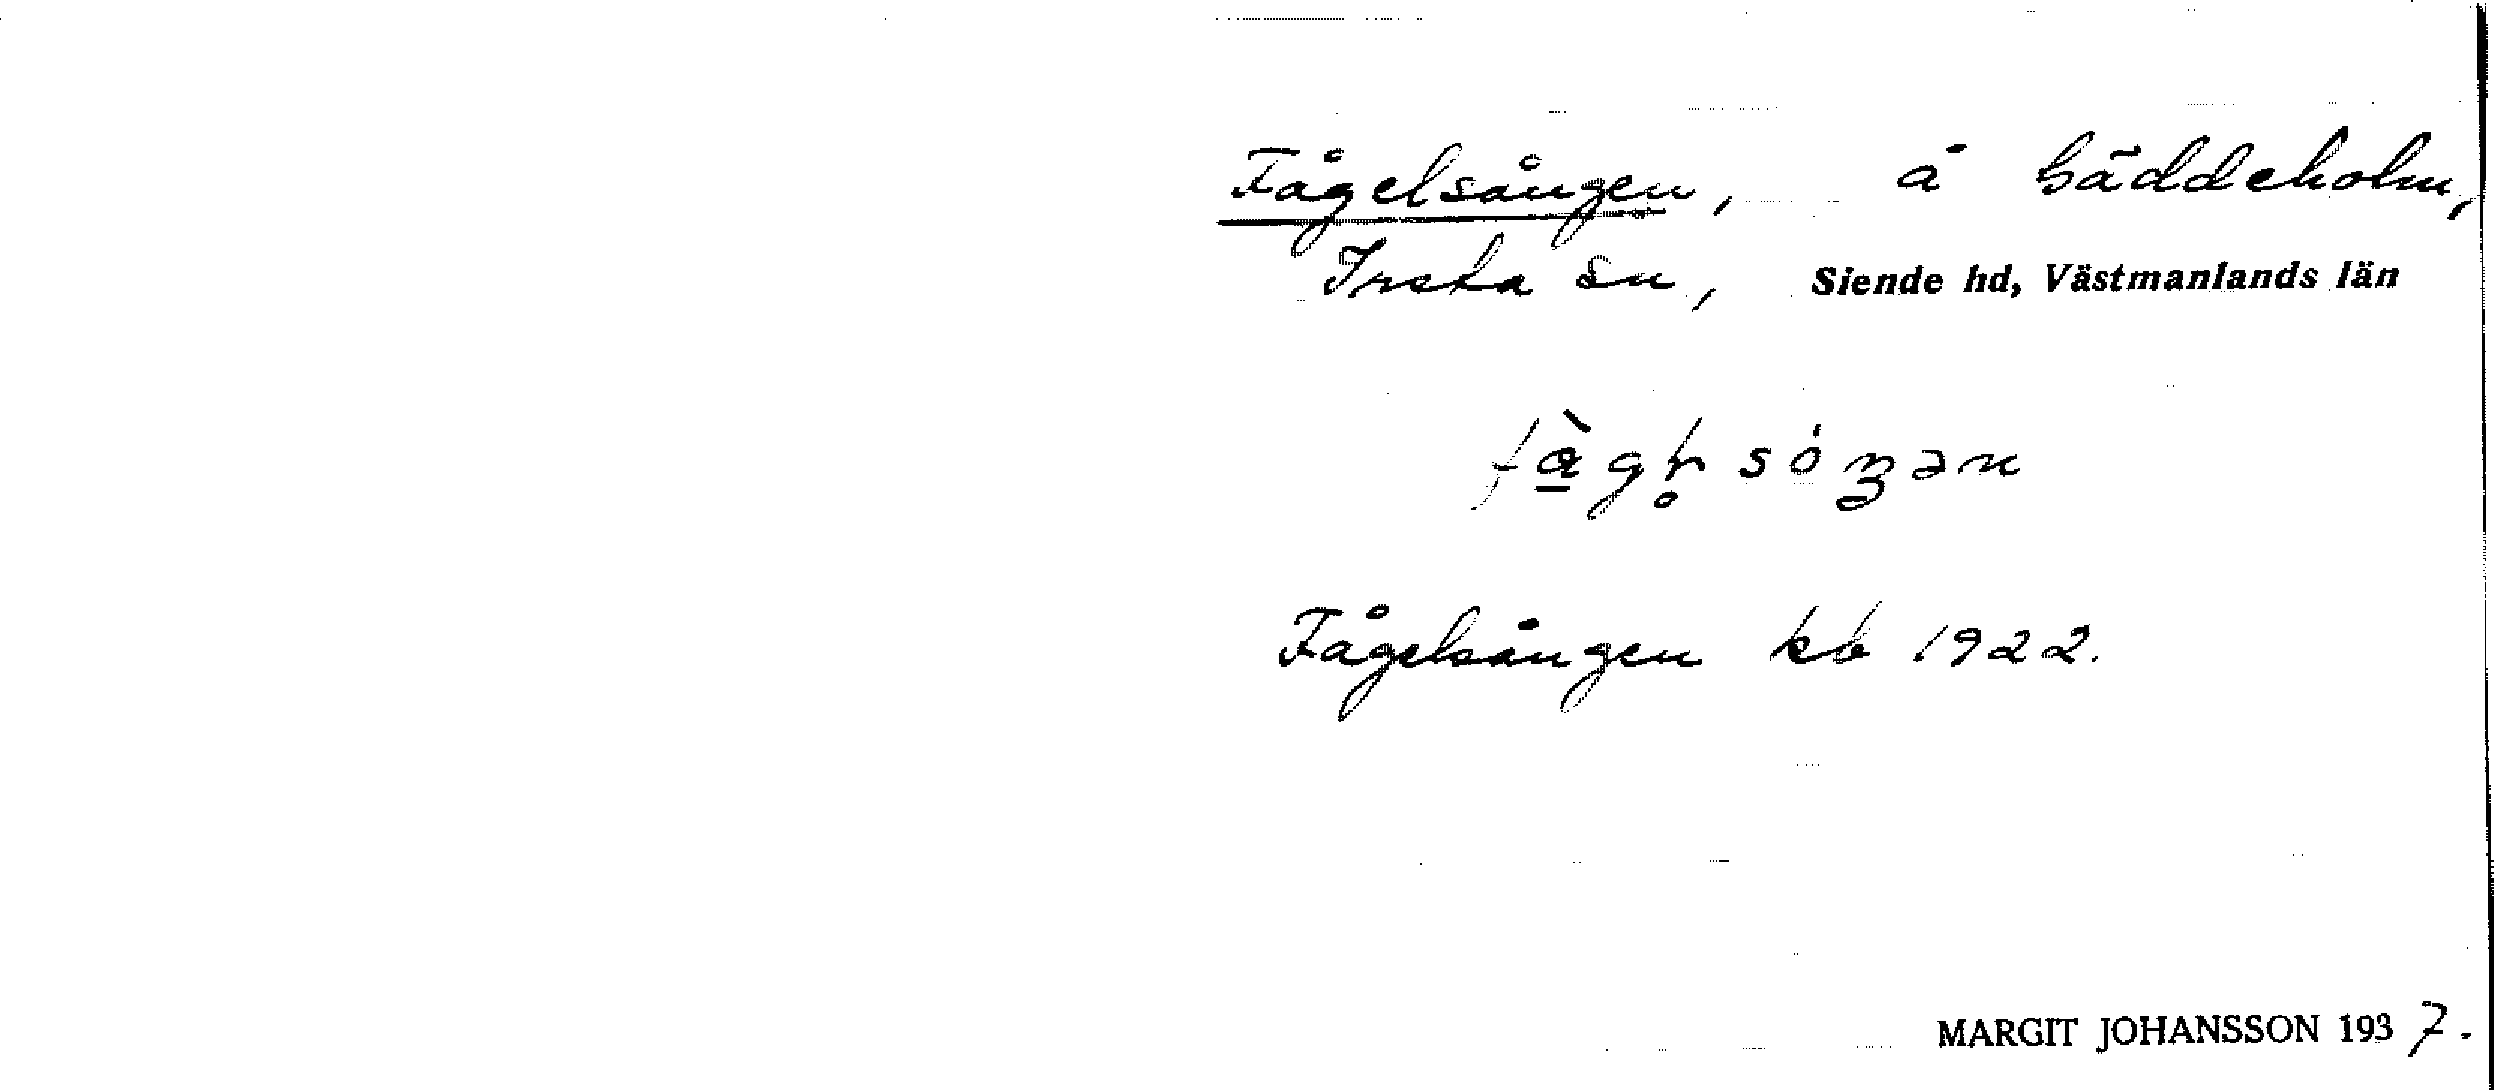 Fågelsången, å Gäddeholm,
Irsta sn, Siende hd, Västmanlands län
Fågelsången kb 1922.
MARGIT JOHANSSON 1937.